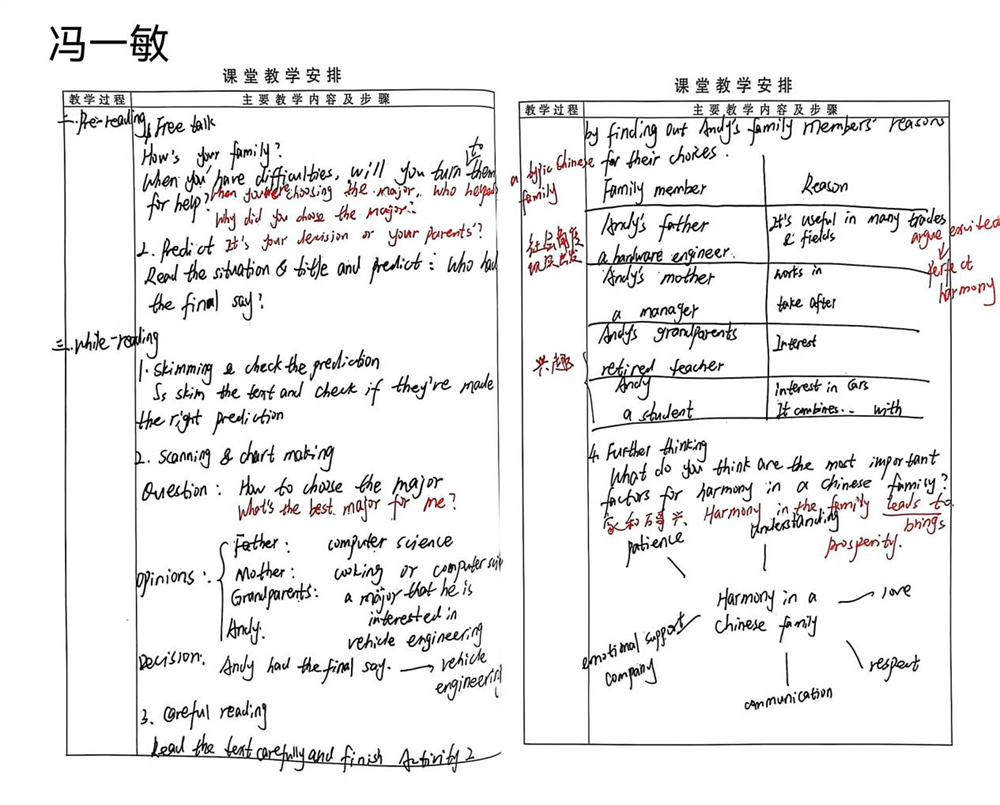 冯一敏
课堂教学安排
教学过程 主要教学内容及步骤
二.Pre-reading
1. Free talk
How's your family?
When you have difficulties, will you turn to them
for help? When you were choosing the major, who helped
Why did you choose the major?
2. Predict It's your decision or your parents'?
Read the situation & title and predict: Who had
the final say?
三.While-reading
1. Skimming & check the prediction
Ss skim the text and check if they've made
the right prediction
2. Scanning & chart making
Question: How to choose the major
What's the best major for me?
Opinions:
Father: computer science
Mother: cooking or computer
Grandparents: a major that he is
interested in
Andy. vehicle engineering
Decision. Andy had the final say. → vehicle
engineering
3. Careful reading
Read the text carefully and finish Activity 2
课堂教学安排
教学过程 主要教学内容及步骤
by finding out Andy's family members' reasons
for their choices.
a typic Chinese
family
Family member Reason
Andy's father It's useful in many trades
& fields
a hardware engineer
社会角度
argue
↓
perfect
harmony
Andy's mother works in
a manager take after
Andy's grandparents Interest
retired teacher
兴趣
Andy interest in cars
a student It combines... with
4. Further thinking
What do you think are the most important
factors for harmony in a chinese family?
家和万事兴. Harmony in the family leads to
brings
prosperity.
patience
understanding
Harmony in a
chinese family
love
emotional support
company
respect
communication